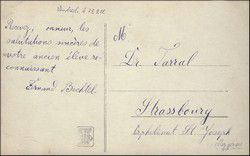 Recevez, monsieur, les
salutations sincères de
votre ancien élève re-
connaissant
Ernand Bechtel
M
Dr. Jarral
Strassbourg
Orphelinat St. Joseph